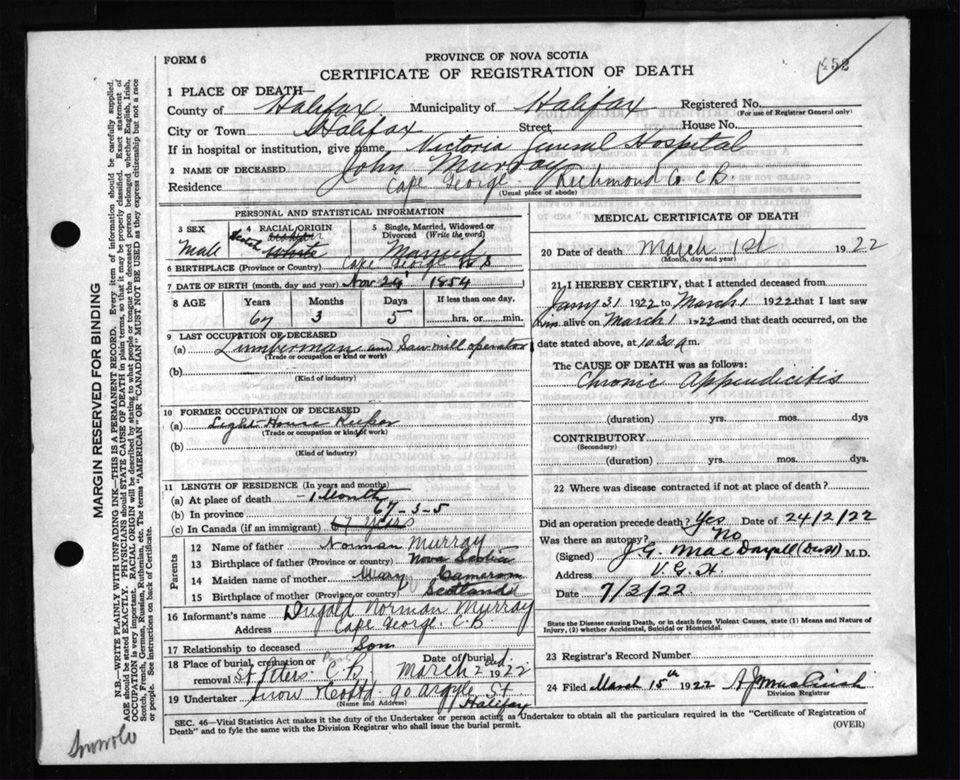 FORM 6
PROVINCE OF NOVA SCOTIA
CERTIFICATE OF REGISTRATION OF DEATH
1 PLACE OF DEATH—
County of Halifax Municipality of Halifax Registered No.
(For use of Registrar General only)
City or Town Halifax Street House No.
If in hospital or institution, give name, Victoria General Hospital
2 NAME OF DECEASED John Murray
Residence Cape George Richmond Co C.B.
(Usual place of abode)
PERSONAL AND STATISTICAL INFORMATION
3 SEX 4 RACIAL ORIGIN 5 Single, Married, Widowed or Divorced (Write the word)
Male Scotch White Married
6 BIRTHPLACE (Province or Country) Cape George N S
7 DATE OF BIRTH (month, day and year) Nov 24 1854
8 AGE Years Months Days If less than one day,
67 3 5 hrs. or min.
9 LAST OCCUPATION OF DECEASED
(a) Lumberman and Saw mill operator
(Trade or occupation or kind or work)
(b)
(Kind of industry)
10 FORMER OCCUPATION OF DECEASED
(a) Light House Keeper
(Trade or occupation or kind of work)
(b)
(Kind of industry)
11 LENGTH OF RESIDENCE (In years and months)
(a) At place of death 1 Month
(b) In province 67-3-5
(c) In Canada (if an immigrant) 67 years
Parents
12 Name of father Norman Murray
13 Birthplace of father (Province or country) Nova Scotia
14 Maiden name of mother Mary Cameron
15 Birthplace of mother (Province or country) Scotland
16 Informant's name Dugald Norman Murray
Address Cape George. C B
17 Relationship to deceased Son
18 Place of burial, cremation or removal St. Peters C.B Date of burial March 2nd 1922
19 Undertaker Snow &Co Ltd. 90 Argyle St
(Name and Address) Halifax
MEDICAL CERTIFICATE OF DEATH
20 Date of death March 1st 1922
(Month, day and year)
21 I HEREBY CERTIFY, that I attended deceased from
Jany 31 1922 to March 1 1922 that I last saw
him alive on March 1 1922 and that death occurred, on
date stated above, at 10.30 a.m.
The CAUSE OF DEATH was as follows:
Chronic Appendicitis
(duration) yrs. mos. dys
CONTRIBUTORY
(Secondary)
(duration) yrs. mos. dys.
22 Where was disease contracted if not at place of death?
Did an operation precede death? Yes Date of 24/2/22
Was there an autopsy? No
(Signed) J.G. M.D.
Address V.G.H.
Date 7/3/22
State the Disease causing Death, or in death from Violent Causes, state (1) Means and Nature of Injury, (2) whether Accidental, Suicidal or Homicidal.
23 Registrar's Record Number
24 Filed March 15th 1922 A J
Division Registrar
SEC. 46—Vital Statistics Act makes it the duty of the Undertaker or person acting as Undertaker to obtain all the particulars required in the "Certificate of Registration of Death" and to fyle the same with the Division Registrar who shall issue the burial permit.
(OVER)
MARGIN RESERVED FOR BINDING
N.B.—WRITE PLAINLY WITH UNFADING INK—THIS IS A PERMANENT RECORD. Every item of information should be carefully supplied.
AGE should be stated EXACTLY. PHYSICIANS should STATE CAUSE OF DEATH in plain terms, so that it may be properly classified. Exact statement of
OCCUPATION is very important. RACIAL ORIGIN will be described by stating to what people or tongue the deceased person belonged whether English, Irish,
Scotch, French, German, Russian, Ruthenian, etc. The terms "AMERICAN" OR "CANADIAN" MUST NOT BE USED as they express citizenship but not a race
or people. See instructions on back of Certificate.